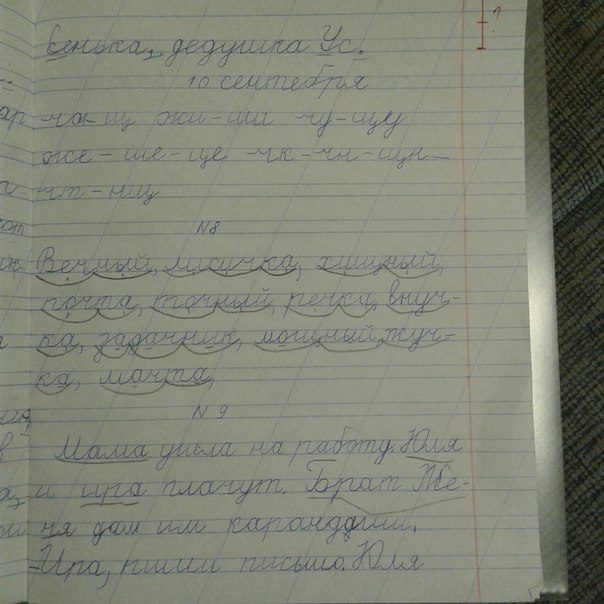 Сенька, дедушка Ус.
10 сентября
ча-щ жи-ши чу-щу
же-ше-це чк-чн-щн-
чт-нщ
№8
Вечный, лисичка, хищный,
почта, точный, речка, внуч-
ка, задачник, мощный, жуч-
ка, мачта,
№9
Мама ушла на работу. Юля
и ира плачут. Брат Же-
ня дам им карандаши.
-Ира, пиши письмо. Юля